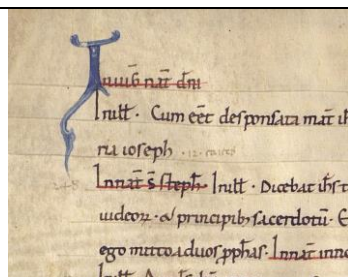 In uiḡ nat̄ dn̄i
In illt̄. Cum eēt desponsata mat̄ ih
ria ioseph
In nat̄ s̄ steph̄. In illt̄. Dicebat ihs t
iudeoꝝ. & principib; sacerdotū. E
ego mitto ad uos ꝓphas. In nat̄ inno